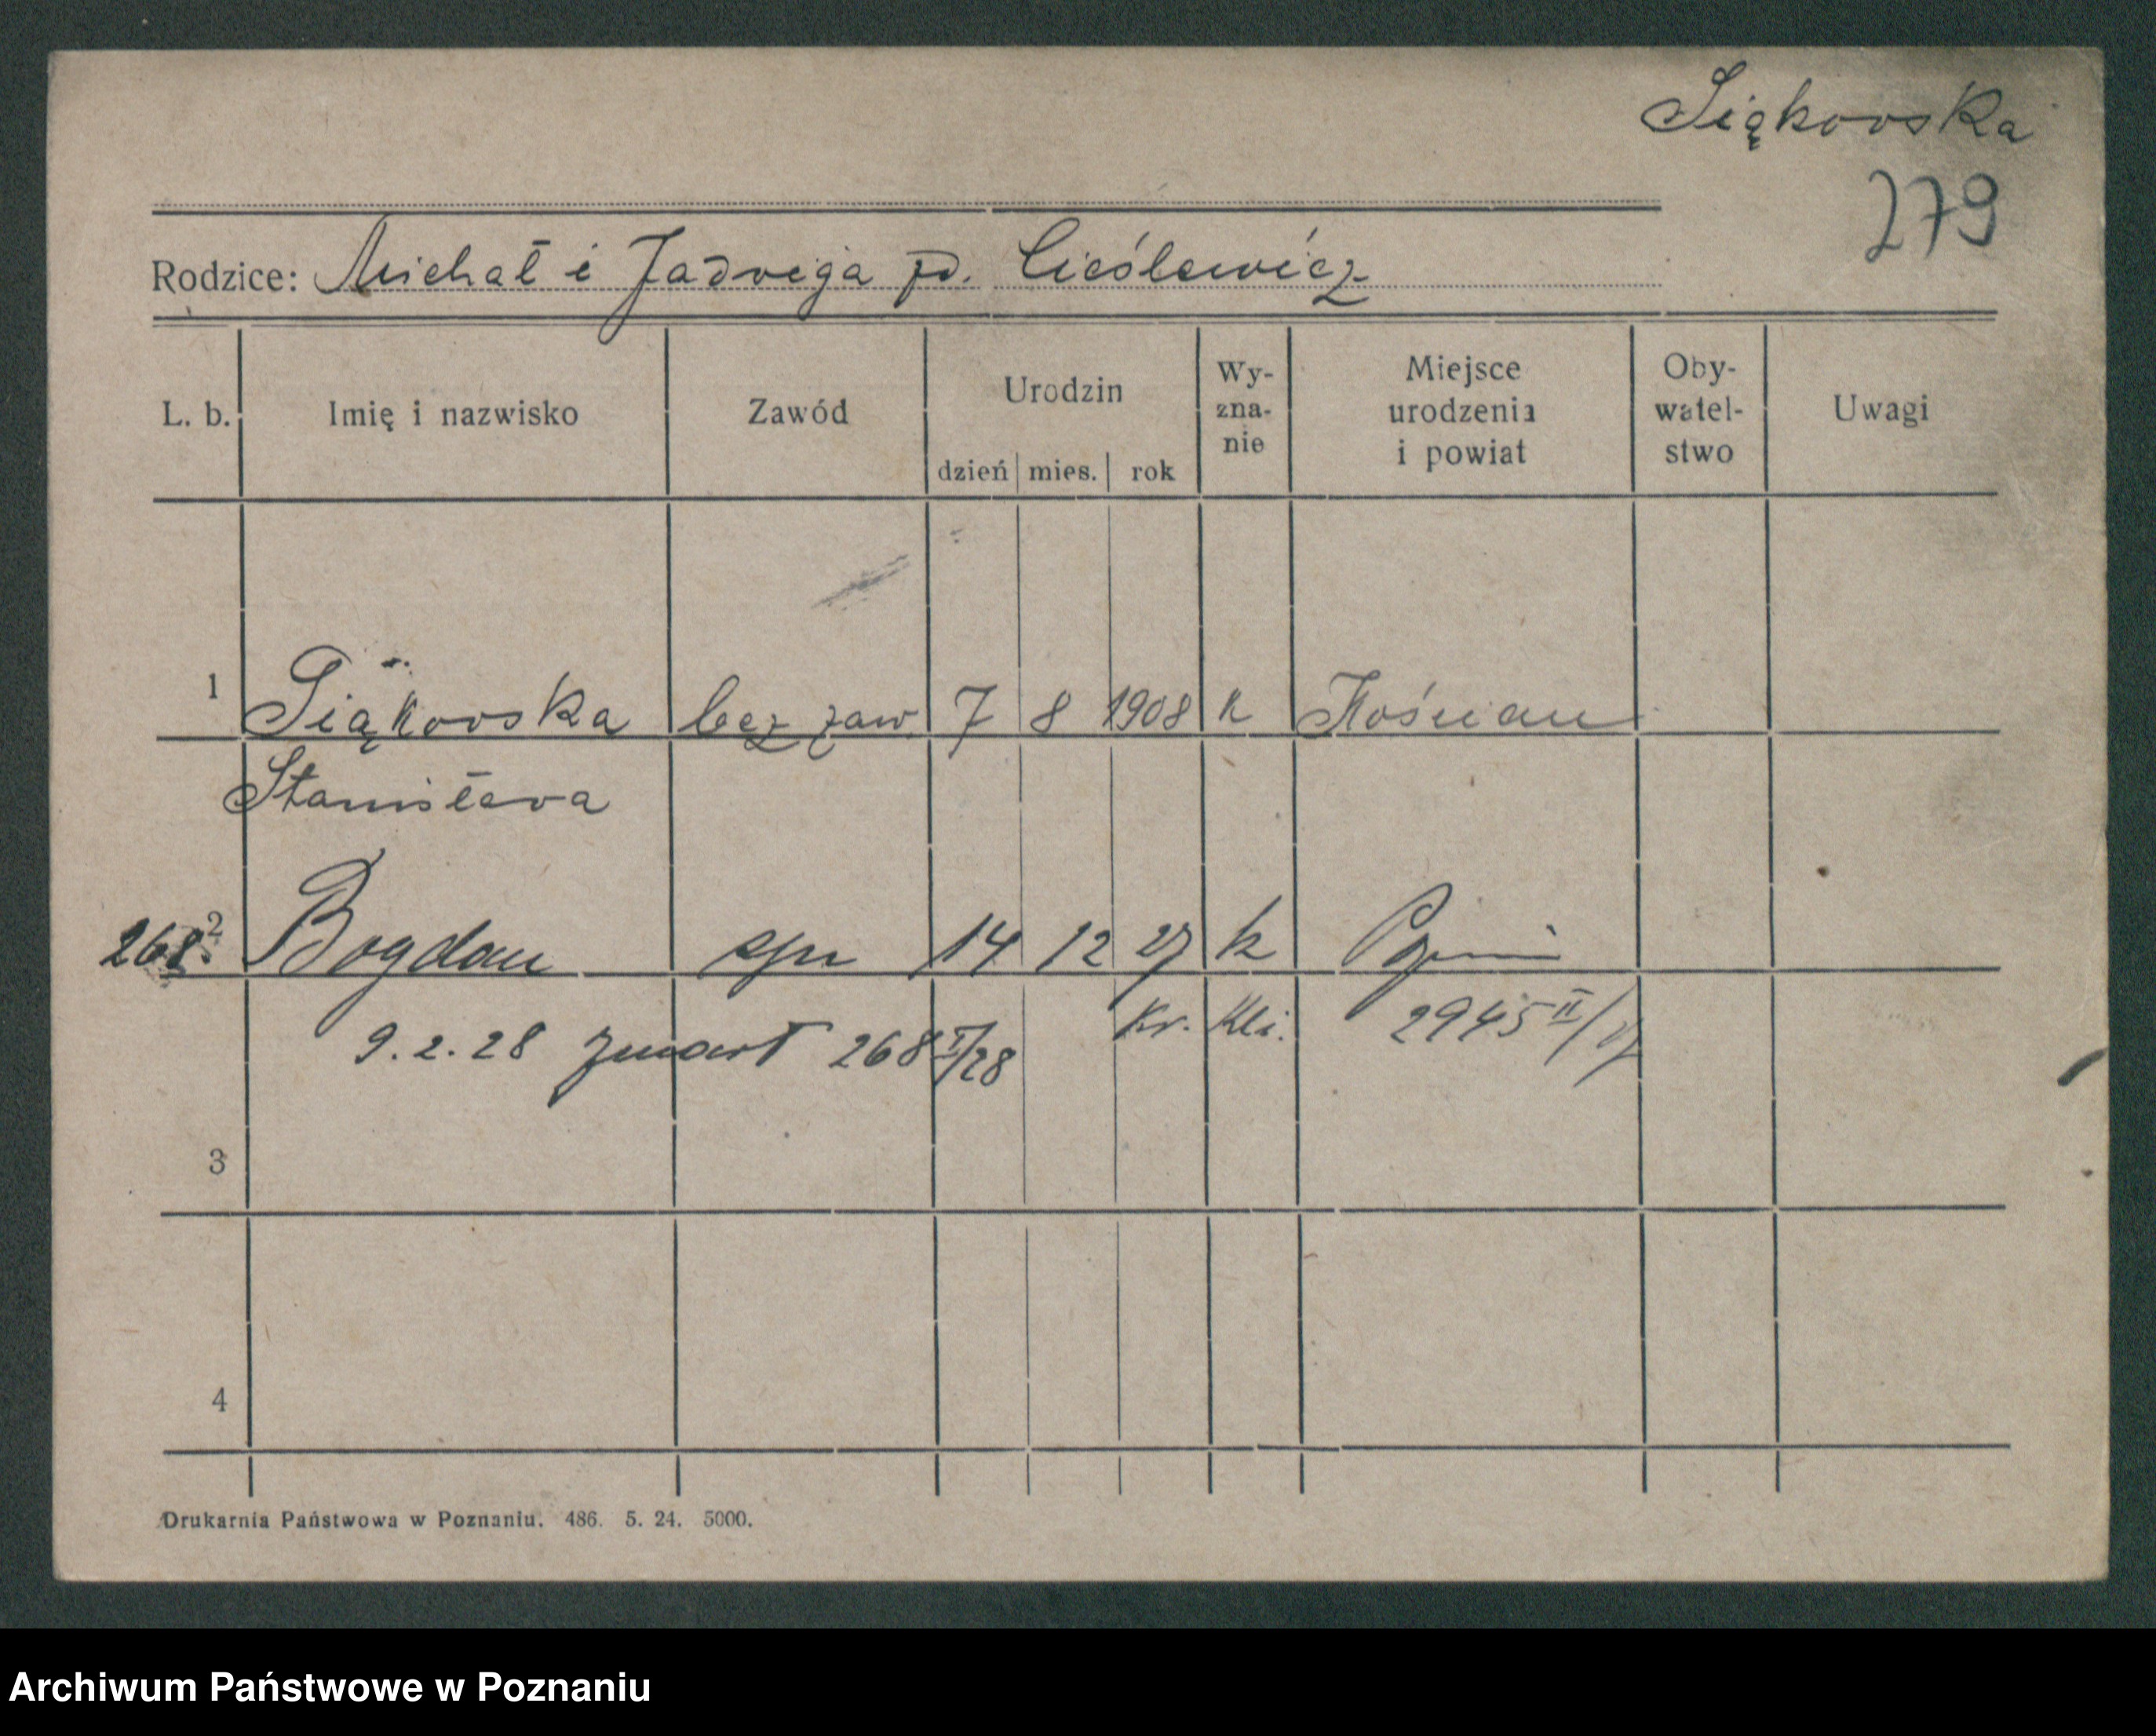 Siąkowska
279
Rodzice: Michał i Jadwiga zd. Cieślewicz
L. b. Imię i nazwisko Zawód Urodzin dzień mies. rok Wy-zna-nie Miejsce urodzenia i powiat Oby-watel-stwo Uwagi
1 Siąkowska bez zaw. 7 8 1908 k Kościan
Stanisława
268 2 Bogdan syn 14 12 27 k
9.2.28 zmarł 268 I/28 Kr. Kli. 2945 II/27
3
4
Drukarnia Państwowa w Poznaniu. 486. 5. 24. 5000.
Archiwum Państwowe w Poznaniu